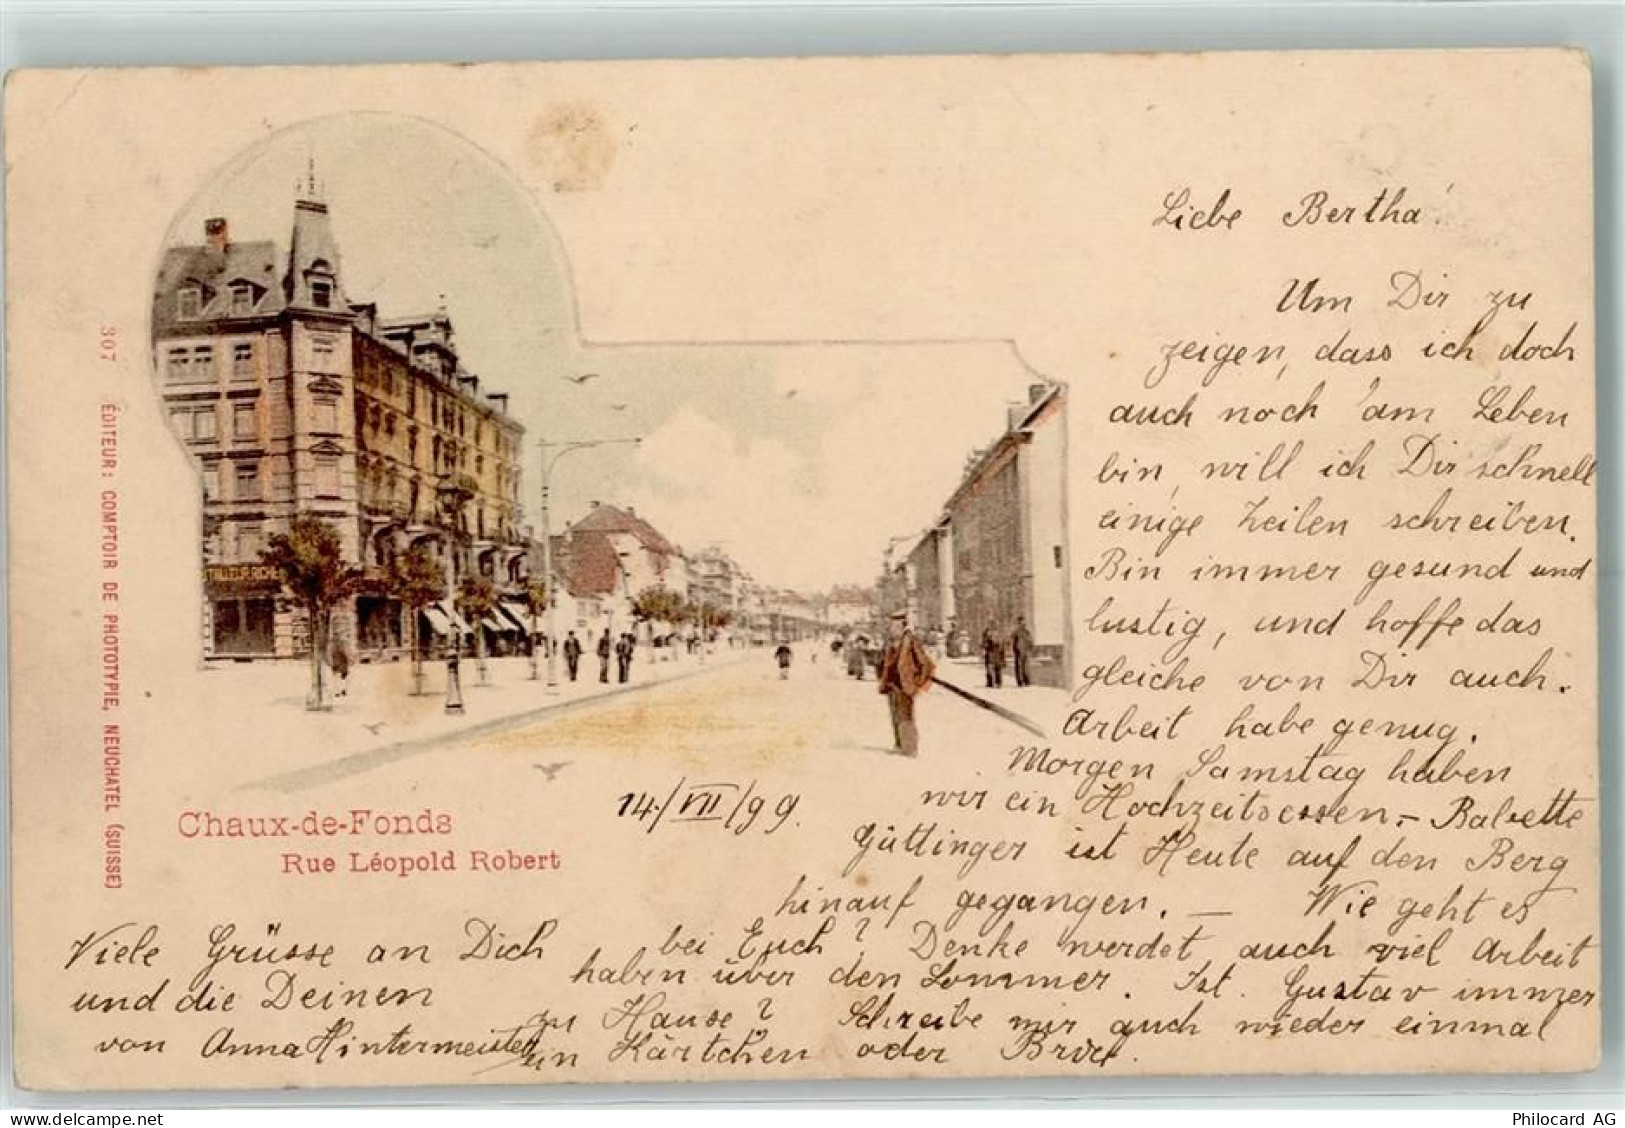 Liebe Bertha!
Um Dir zu
zeigen, dass ich doch
auch noch am Leben
bin, will ich Dir schnell
einige Zeilen schreiben.
Bin immer gesund und
lustig, und hoffe das
gleiche von Dir auch.
Arbeit habe genug.
Morgen Samstag haben
wir ein Hochzeitsessen. – Babette
Güttinger ist Heute auf den Berg
hinauf gegangen. — Wie geht es
bei Euch? Denke werdet auch viel Arbeit
haben über den Sommer. Ist Gustav immer
zu Hause? Schreibe mir auch wieder einmal
ein Kärtchen oder Brief.
Viele Grüsse an Dich
und die Deinen
von Anna Hintermeister
14./VII/99.
Chaux-de-Fonds
Rue Léopold Robert
307 ÉDITEUR: COMPTOIR DE PHOTOTYPIE, NEUCHATEL (SUISSE)
Philocard AG